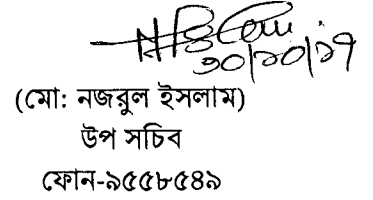 ৩০/১০/১৭
(মো: নজরুল ইসলাম)
উপ সচিব
ফোন-৯৫৫৮৫৪৯